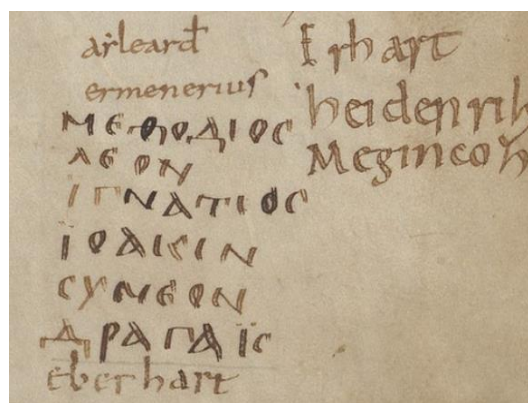 arleard
ermenerius
ΜΕΘΟΔΙΟC
ΛΕΟΝ
ΙΓΝΑΤΙΟC
ΪΟΑΚΙΝ
CΥΜΕΟΝ
ΔΡΑΓΑΪC
eberhart
Erhart
heidenrih